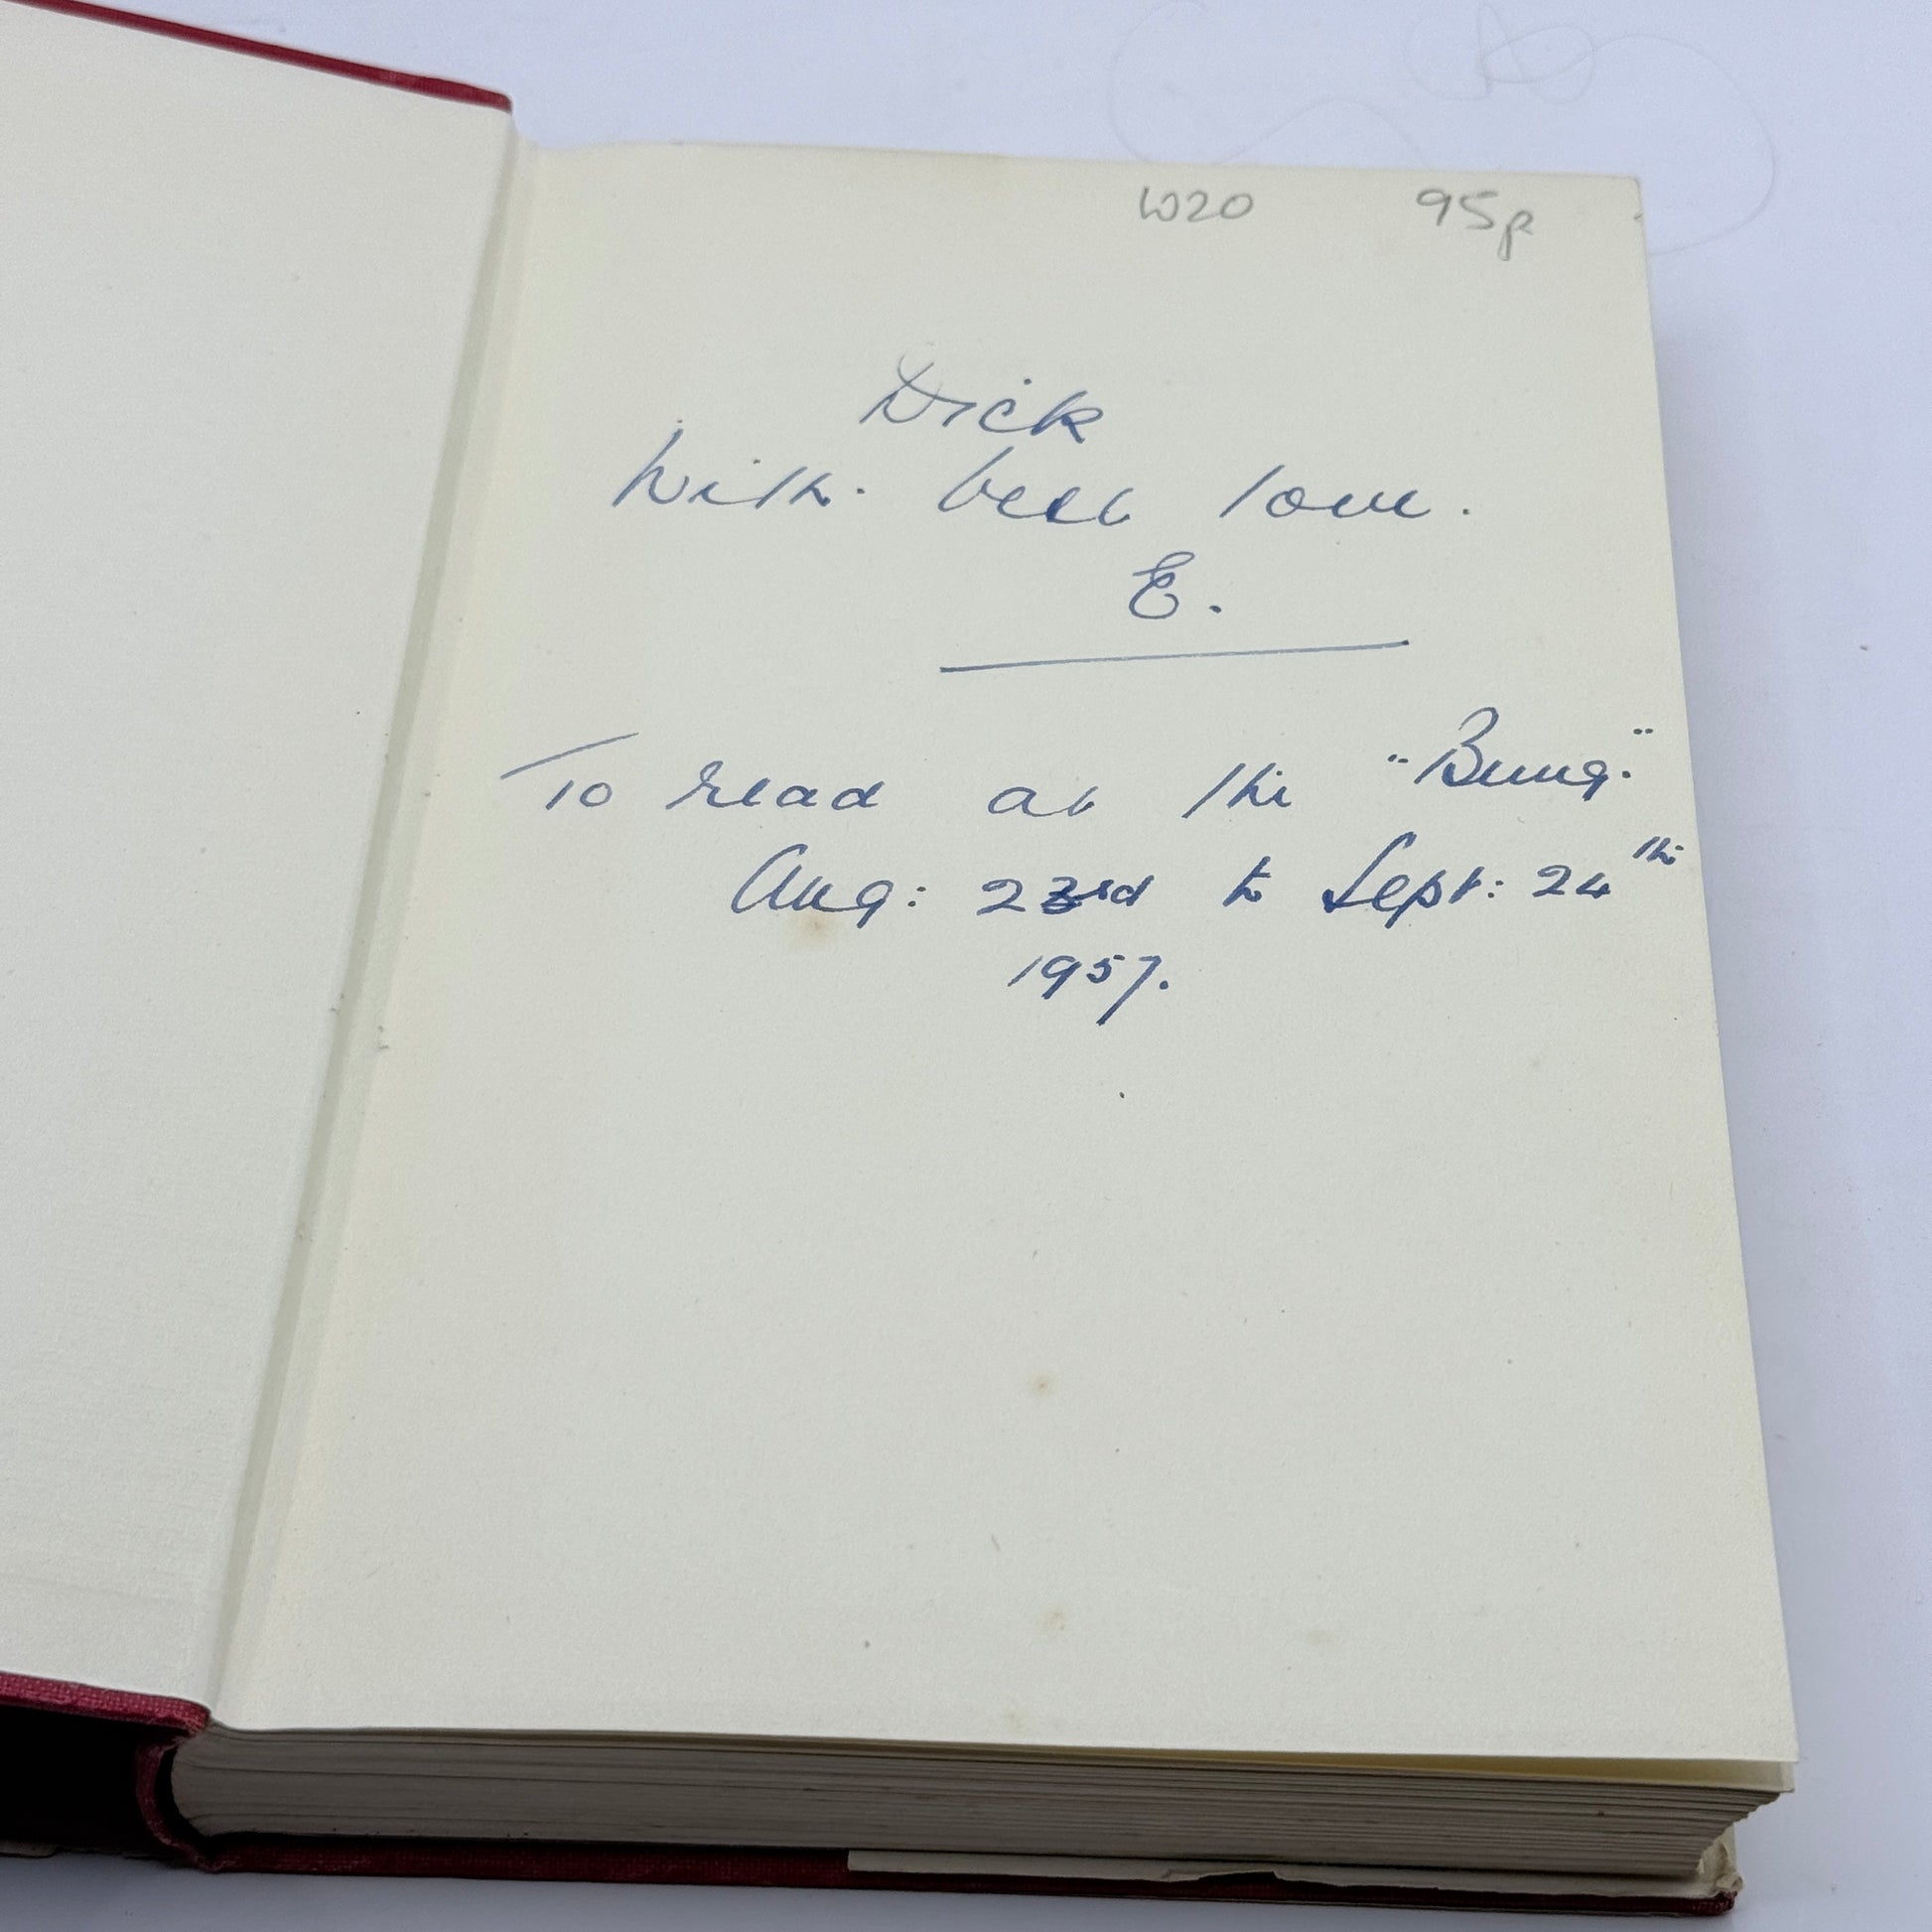 W20 95p
Dick
With. best love.
E.
To read at the "Bung."
Aug: 23rd to Sept: 24th
1957.